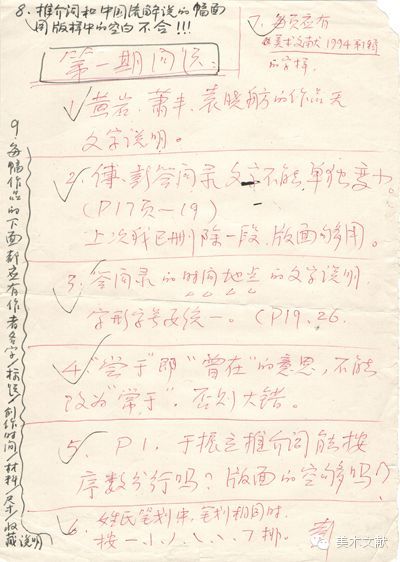 8. 推介词和中国流解说的幅面
版样中的空白不
7. 每页应有
美术文献 1994年1辑
的字样
第一期问题:
1. 黄岩、萧丰、袁晓舫的作品无
文字说明。
2. 傅、彭答问录文字不能单独变小。
(P17页—19)
上次我已删除一段,版面够用。
3. 答问录的时间地点的文字说明
字形字号要统一。(P19、26.
4. “尝于”即“曾在”的意思,不能
改为“常于”,否则大错。
5. P1. 于振立推介词能按
序数分行吗?版面的空够吗?
6. 姓氏笔划 笔划相同时,
按一丨丿丶フ排。 彭
9. 每幅作品的下面都应有作者名字/标题/创作时间/材料/尺寸/收藏说明
美术文献